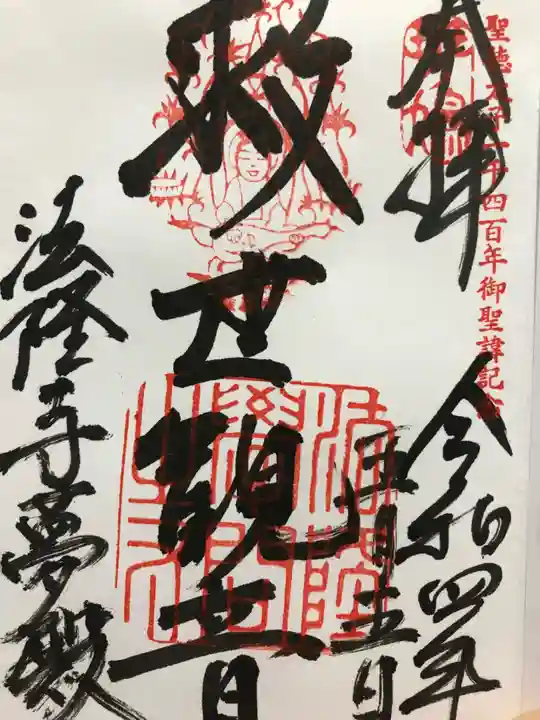 聖徳太子一千四百年御聖諱記
奉拝
令和四年
五月五日
救世観音
法隆寺夢殿